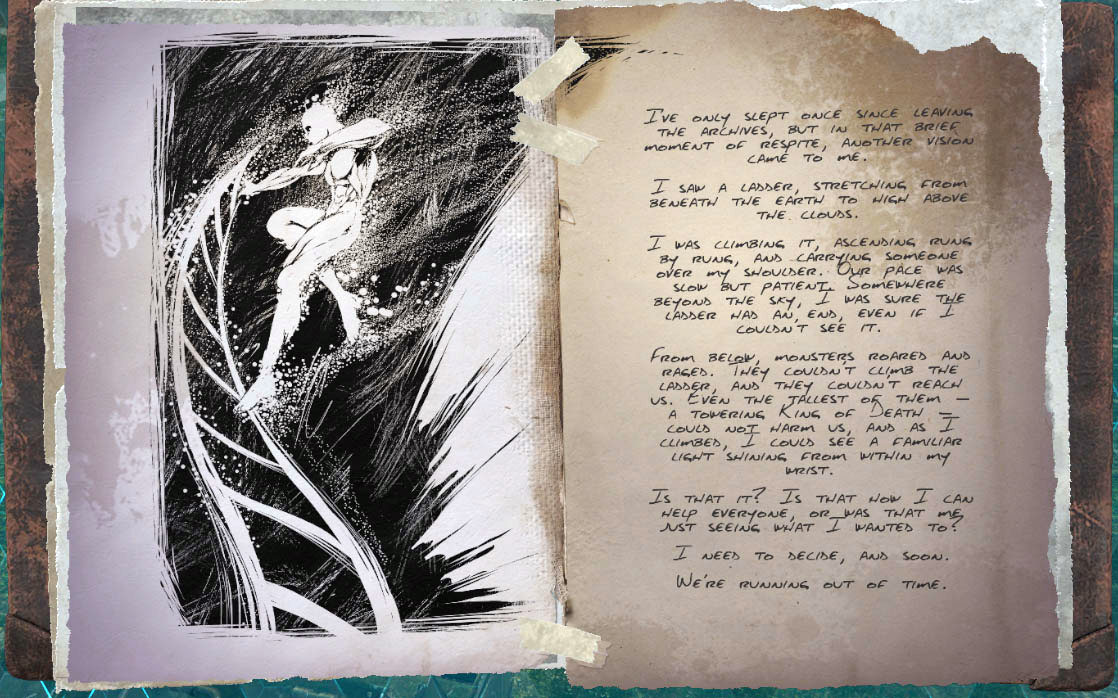 I'VE ONLY SLEPT ONCE SINCE LEAVING
THE ARCHIVES, BUT IN THAT BRIEF
MOMENT OF RESPITE, ANOTHER VISION
CAME TO ME.
I SAW A LADDER, STRETCHING FROM
BENEATH THE EARTH TO HIGH ABOVE
THE CLOUDS.
I WAS CLIMBING IT, ASCENDING RUNG
BY RUNG, AND CARRYING SOMEONE
OVER MY SHOULDER. OUR PACE WAS
SLOW BUT PATIENT. SOMEWHERE
BEYOND THE SKY, I WAS SURE THE
LADDER HAD AN END, EVEN IF I
COULDN'T SEE IT.
FROM BELOW, MONSTERS ROARED AND
RAGED. THEY COULDN'T CLIMB THE
LADDER, AND THEY COULDN'T REACH
US. EVEN THE TALLEST OF THEM –
A TOWERING KING OF DEATH –
COULD NOT HARM US, AND AS I
CLIMBED, I COULD SEE A FAMILIAR
LIGHT SHINING FROM WITHIN MY
WRIST.
IS THAT IT? IS THAT HOW I CAN
HELP EVERYONE, OR WAS THAT ME
JUST SEEING WHAT I WANTED TO?
I NEED TO DECIDE, AND SOON.
WE'RE RUNNING OUT OF TIME.